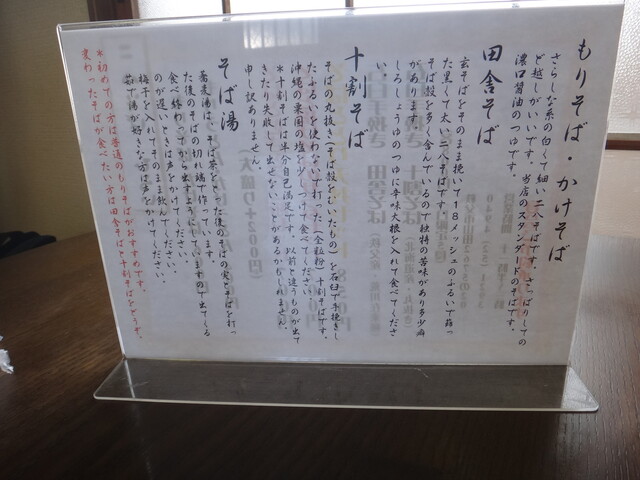 もりそば・かけそば
さらしな系の白くて細い二八そばです。さっぱりしての
ど越しがいいです。当店のスタンダードのそばです。
濃口醤油のつゆです。
田舎そば
玄そばをそのまま挽いて18メッシュのふるいで篩っ
た黒くて太い二八そばです。
そば殻を多く含んでいるので独特の苦味があり多少癖
があります。
しろしょうゆのつゆに辛味大根を入れて食べてくださ
い。
十割そば
そばの丸抜き(そば殻をむいたもの)を石臼で手挽きし
たふるいを使わないで打った(全粒粉)十割そばです。
沖縄の粟国の塩を少しつけて食べてください。
*十割そばは半分自己満足です。以前と違うものが出て
きたり、失敗して出せないことがあるかもしれません。
申し訳ありません。
そば湯
蕎麦湯は、そば茶をとった後のそばの実とそばを打っ
た後のそばの切れ端で作っています。
食べ終わってから出すようにしていますので出てくる
のが遅いときは声をかけてください。
梅干を入れてそのまま飲んでください。
茹で湯が好きな方は声をかけてください。
*初めての方は普通のもりそばがおすすめです。
変わったそばが食べたい方は田舎そばと十割そばをどうぞ。